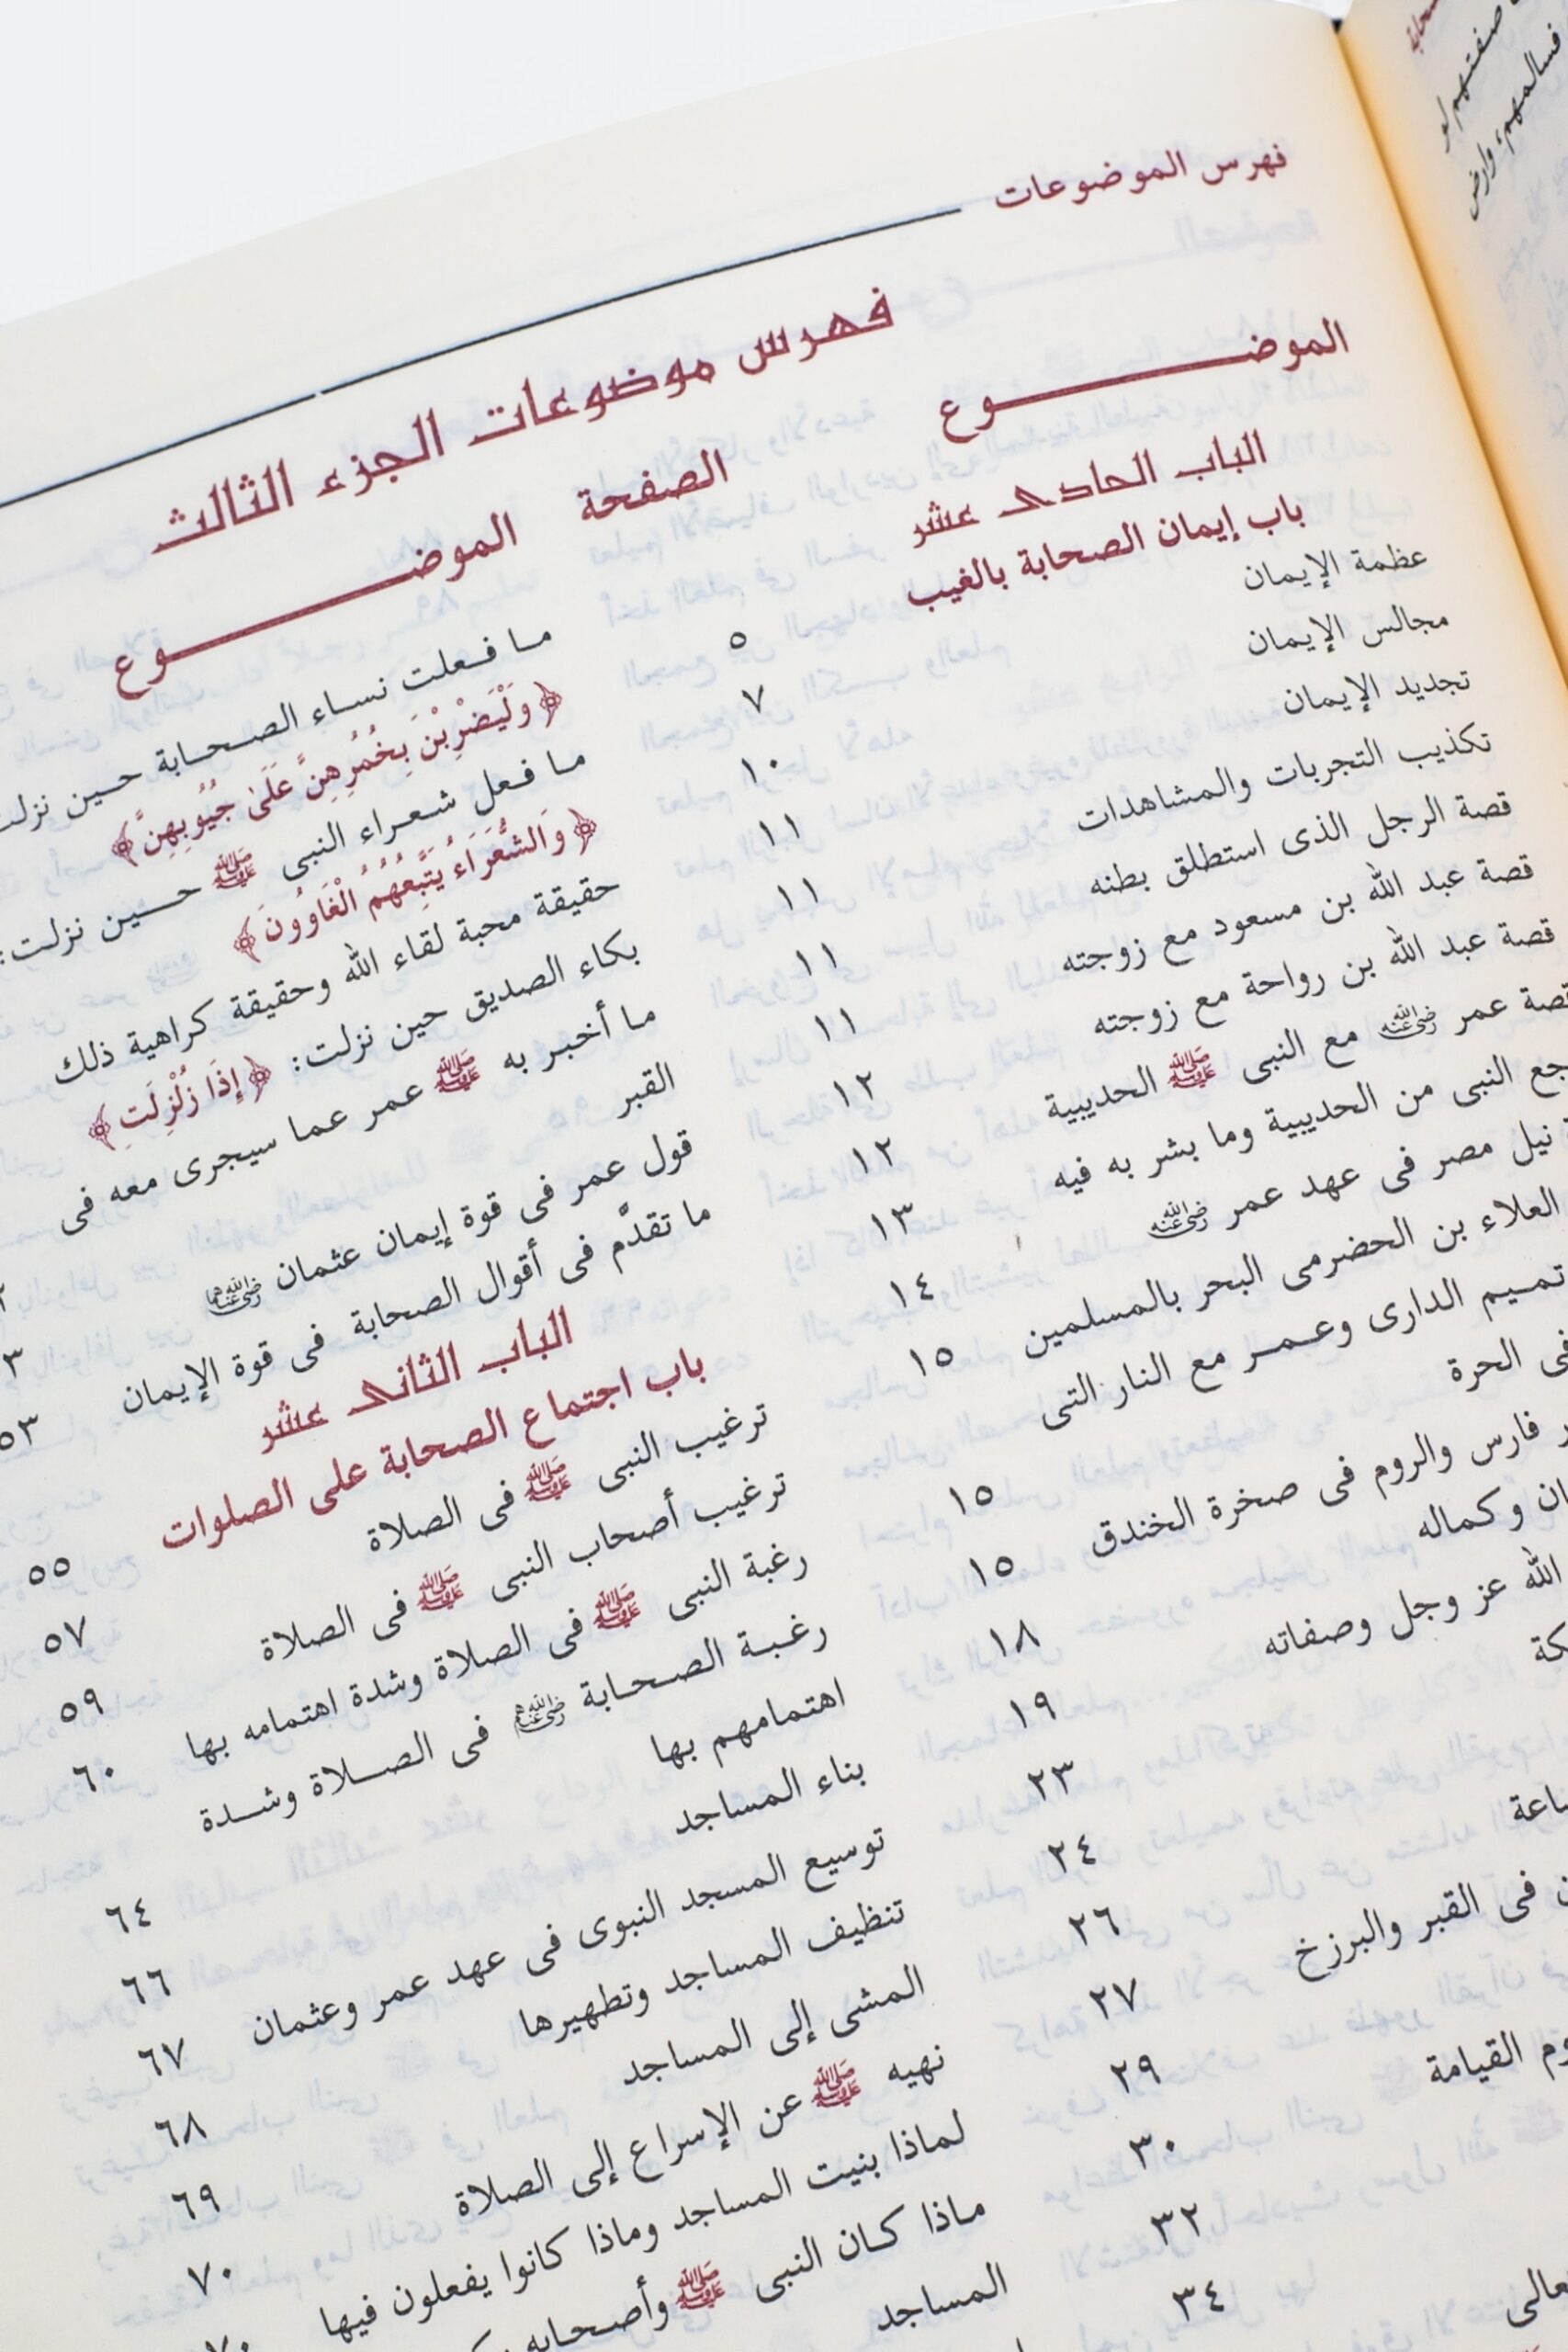 فهرس الموضوعات
فهرس موضوعات الجزء الثالث
الموضوع
الصفحة
الباب الحادى عشر
باب إيمان الصحابة بالغيب
عظمة الإيمان ٥
مجالس الإيمان ٧
تجديد الإيمان ١٠
تكذيب التجربات والمشاهدات ١١
قصة الرجل الذى استطلق بطنه ١١
قصة عبد الله بن مسعود مع زوجته ١١
قصة عبد الله بن رواحة مع زوجته ١١
قصة عمر رضي الله عنه مع النبى ﷺ الحديبية ١٢
النبى من الحديبية وما بشر به فيه ١٢
نيل مصر فى عهد عمر رضي الله عنه ١٣
العلاء بن الحضرمى البحر بالمسلمين ١٤
تميم الدارى وعمر مع النار التى
فى الحرة ١٥
فارس والروم فى صخرة الخندق ١٥
وكماله ١٥
الله عز وجل وصفاته ١٨
١٩
٢٣
٢٤
فى القبر والبرزخ ٢٦
٢٧
القيامة ٢٩
٣٠
٣٢
٣٤
الموضوع
ما فعلت نساء الصحابة حين نزلت
﴿وَلْيَضْرِبْنَ بِخُمُرِهِنَّ عَلَىٰ جُيُوبِهِنَّ﴾
ما فعل شعراء النبى ﷺ حين نزلت:
﴿وَالشُّعَرَاءُ يَتَّبِعُهُمُ الْغَاوُونَ﴾
حقيقة محبة لقاء الله وحقيقة كراهية ذلك
بكاء الصديق حين نزلت: ﴿إِذَا زُلْزِلَتِ﴾
ما أخبر به ﷺ عمر عما سيجرى معه فى
القبر
قول عمر فى قوة إيمان عثمان رضي الله عنهما
ما تقدّم فى أقوال الصحابة فى قوة الإيمان ٥٣
الباب الثانى عشر
باب اجتماع الصحابة على الصلوات
ترغيب النبى ﷺ فى الصلاة ٥٥
ترغيب أصحاب النبى ﷺ فى الصلاة ٥٧
رغبة النبى ﷺ فى الصلاة وشدة اهتمامه بها ٥٩
رغبة الصحابة رضي الله عنهم فى الصلاة وشدة
اهتمامهم بها ٦٠
بناء المساجد ٦٤
توسيع المسجد النبوى فى عهد عمر وعثمان ٦٦
تنظيف المساجد وتطهيرها ٦٧
المشى إلى المساجد ٦٨
نهيه ﷺ عن الإسراع إلى الصلاة ٦٩
لماذا بنيت المساجد وماذا كانوا يفعلون فيها ٧٠
ماذا كان النبى ﷺ وأصحابه
المساجد